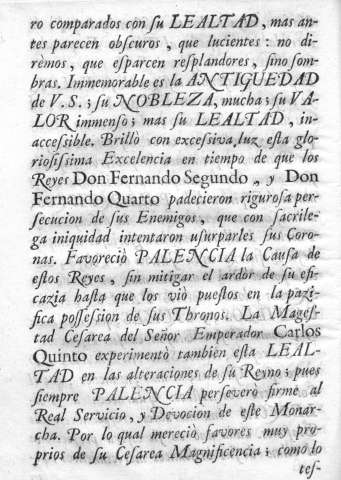 ro comparados con ſu LEALTAD, mas an-
tes parecen obſcuros, que lucientes: no di-
rèmos, que eſparcen reſplandores, ſino ſom-
bras. Immemorable es la ANTIGUEDAD
de V. S.; ſu NOBLEZA, mucha; ſu VA-
LOR immenſo; mas ſu LEALTAD, in-
acceſsible. Brillò con exceſsiva luz eſta glo-
rioſiſsima Excelencia en tiempo de que los
Reyes Don Fernando Segundo, y Don
Fernando Quarto padecieron riguroſa per-
ſecucion de sus Enemigos, que con ſacrile-
ga iniquidad intentaron uſurparles ſus Coro-
nas. Favoreciò PALENCIA la Cauſa de
eſtos Reyes, ſin mitigar el ardòr de ſu efi-
cazia haſta que los viò pueſtos en la pazi-
fica poſſeſsion de sus Thronos. La Mageſ-
tad Ceſarea del Señor Emperador Carlos
Quinto experimentò tambien eſta LEAL-
TAD en las alteraciones de ſu Reyno; pues
ſiempre PALENCIA perſeverò firme al
Real Servicio, y Devocion de eſte Monar-
cha. Por lo qual mereciò favores muy pro-
prios de ſu Ceſarea Magnificencia; como lo
teſ-